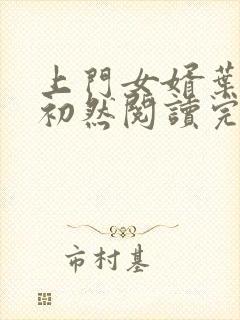 上門女婿葉
初然閱讀完
市村基